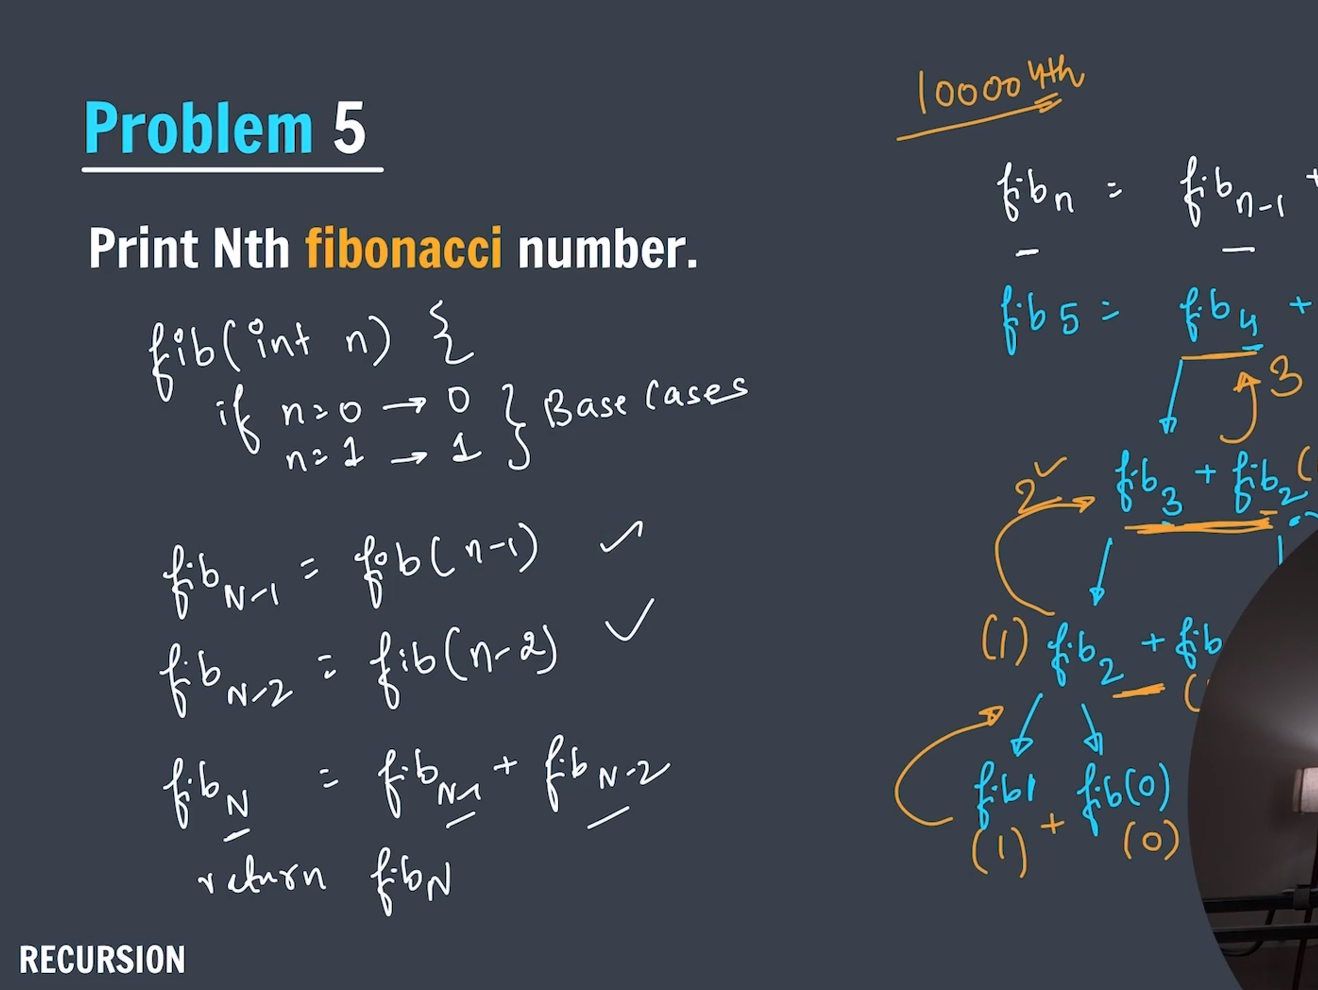 Problem 5
Print Nth fibonacci number.
fib(int n) {
if n=0 → 0 } Base Cases
n=1 → 1
fib N-1 = fib(n-1) ✓
fib N-2 = fib(n-2) ✓
fib N = fib N-1 + fib N-2
return fib N
RECURSION
10000 4th
fib n = fib n-1 +
fib 5 = fib 4 +
3
2✓ fib 3 + fib 2 (
(1) fib 2 + fib
(
fib1 fib(0)
(1) + (0)